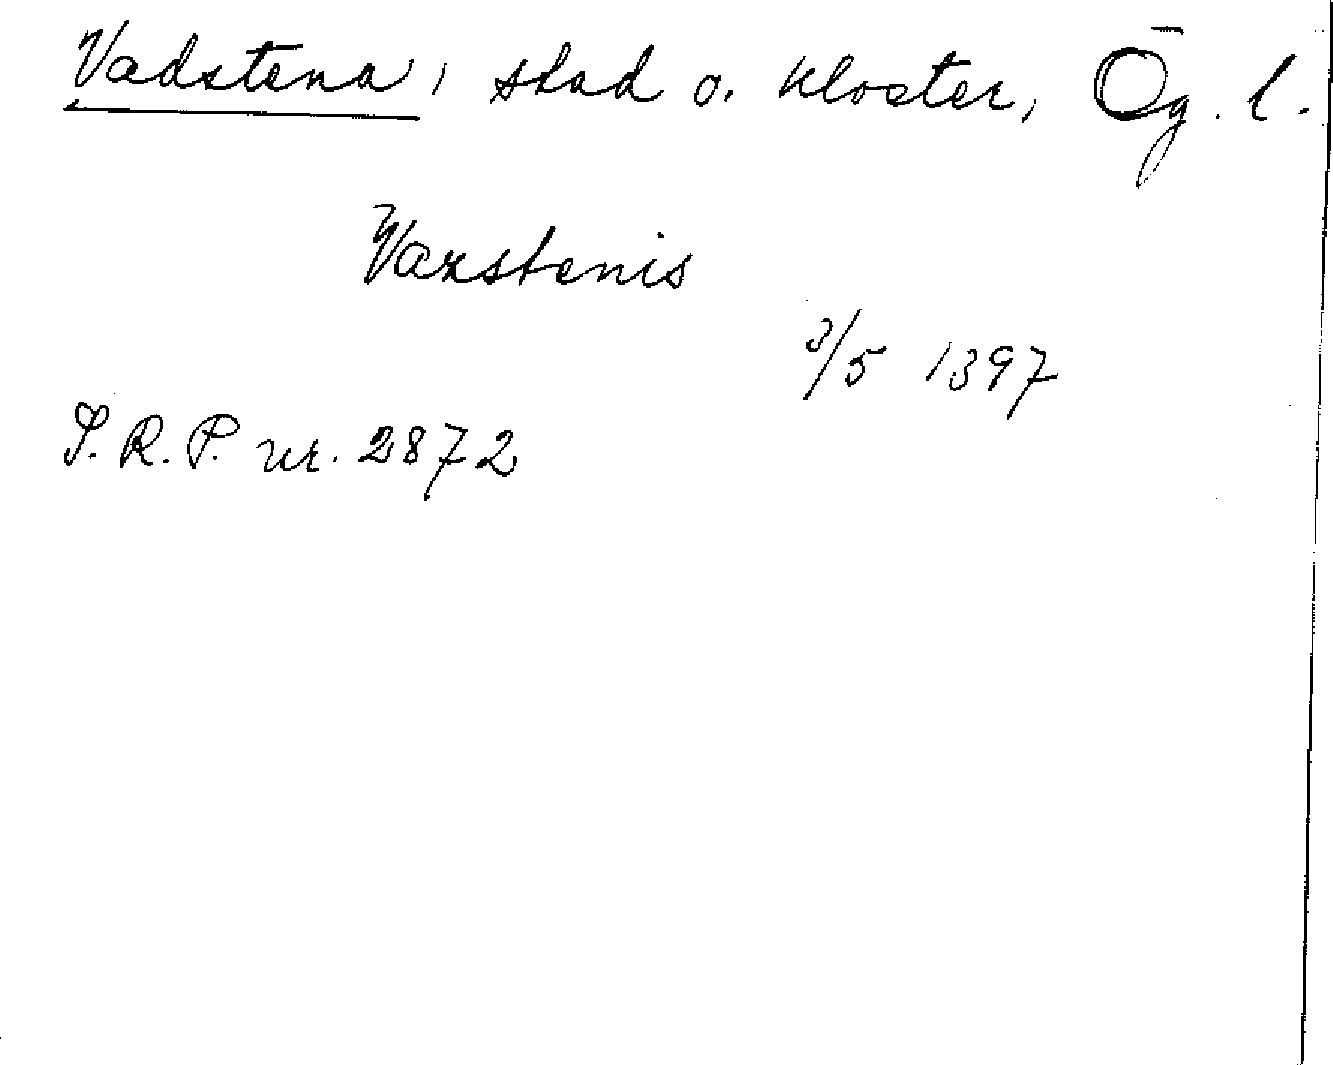 Vadstena, stad o. kloster, Ög. l.
Vazstenis
3/5 1397
S.R.P. nr. 2872